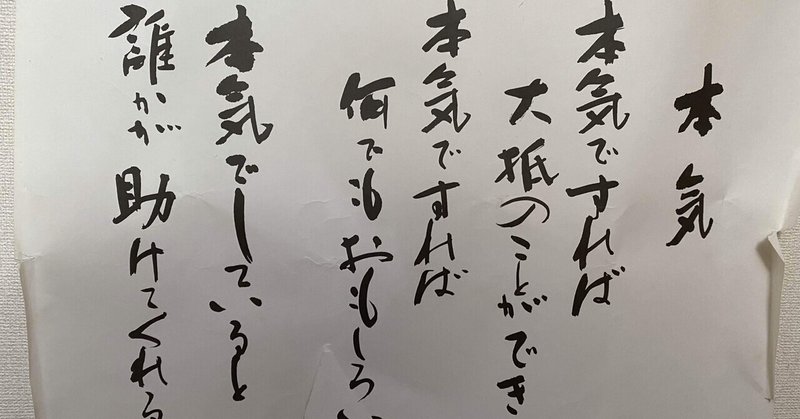 本気
本気ですれば
大抵のことができ
本気ですれば
何でもおもしろい
本気でしていると
誰かが助けてくれる